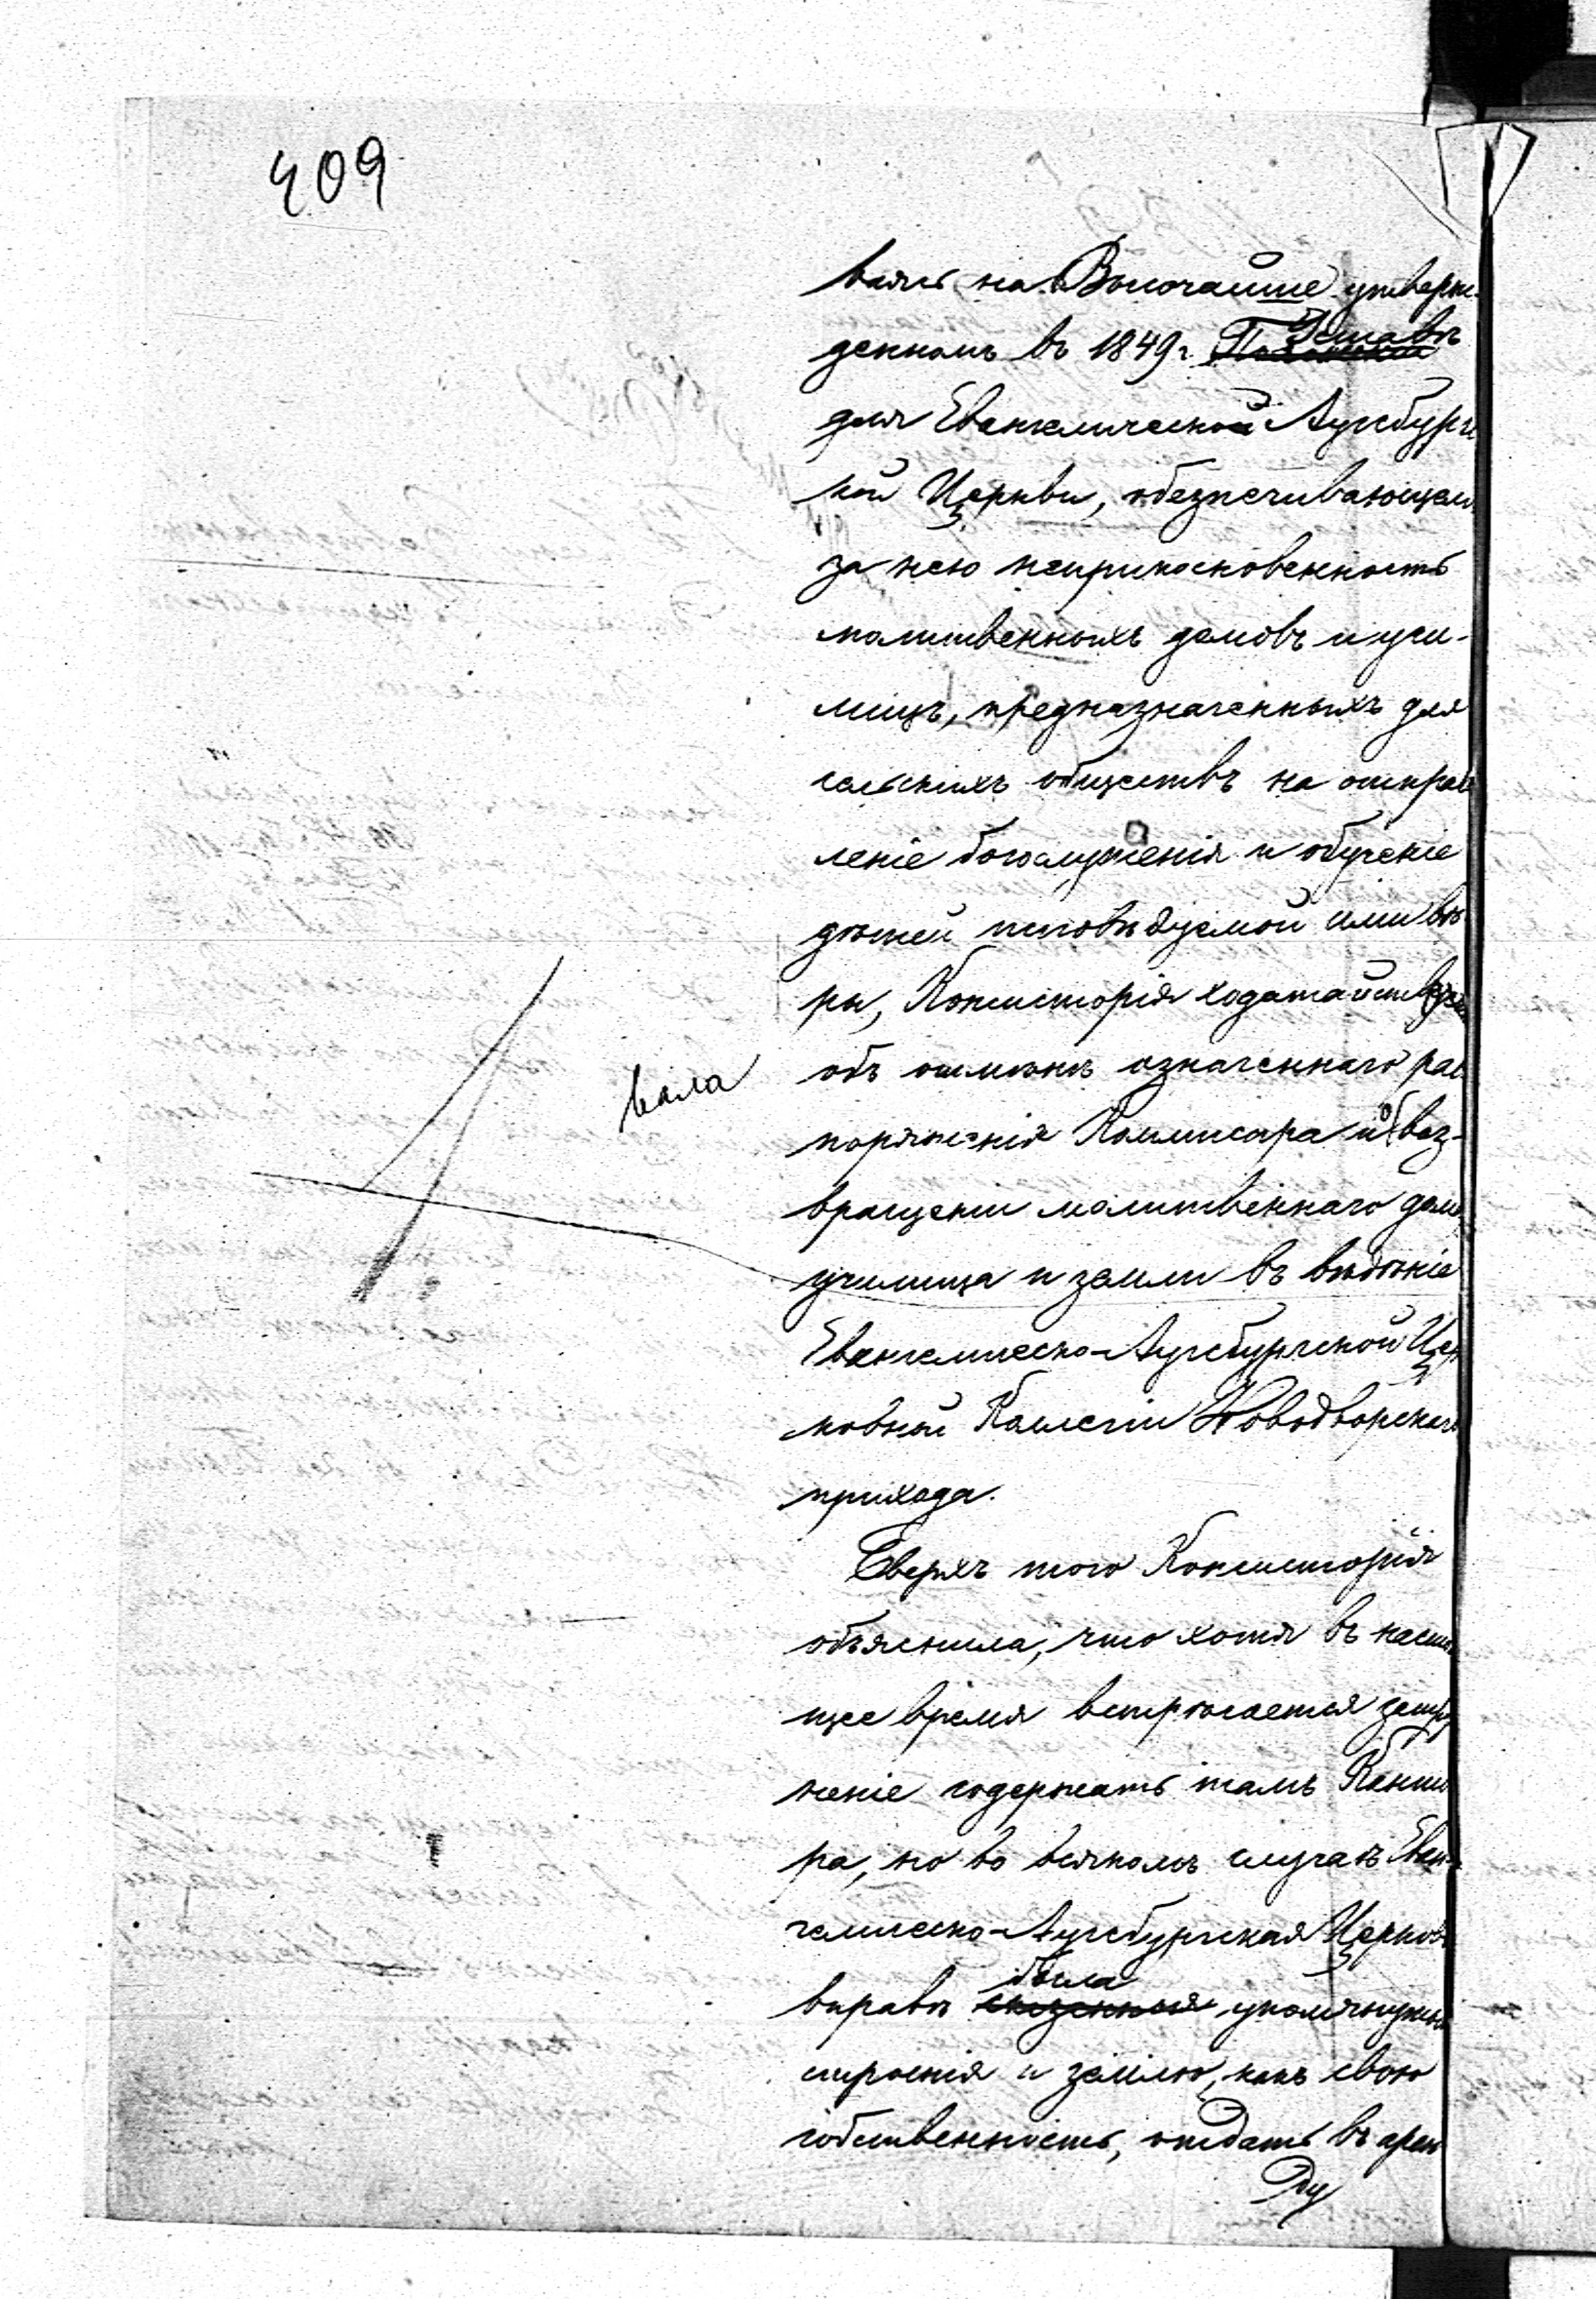 409
ваясь на Высочайше утверж-
денномъ въ 1849 г. Уставѣ
для Евангелической Аугсбургс
кой Церкви, обезпечивающемъ
за нею неприкосновенность
молитвенныхъ домовъ и учи-
лищъ, предназначенныхъ для
сельскихъ обществъ на отправ
леніе богослуженія и обученіе
дѣтей исповѣдуемой ими вѣ
ры, Консисторія ходатайство
вала
объ отмѣнѣ означеннаго рас
поряженія Коммисара и о воз-
вращеніи молитвеннаго дома
училища и земли въ вѣдѣніе
Евангелическо-Аугсбургской Цер
ковной Коллегіи Новодворскаго
прихода.
Сверхъ того Консисторія
объяснила, что хотя въ насто
щее время встрѣчается затру
неніе содержать тамъ Канто
ра, но во всякомъ случаѣ Еван-
гелическо-Аугсбургская Церковь
вправѣ была упомянутыя
строенія и землю, какъ свою
собственность, отдать въ арен
ду